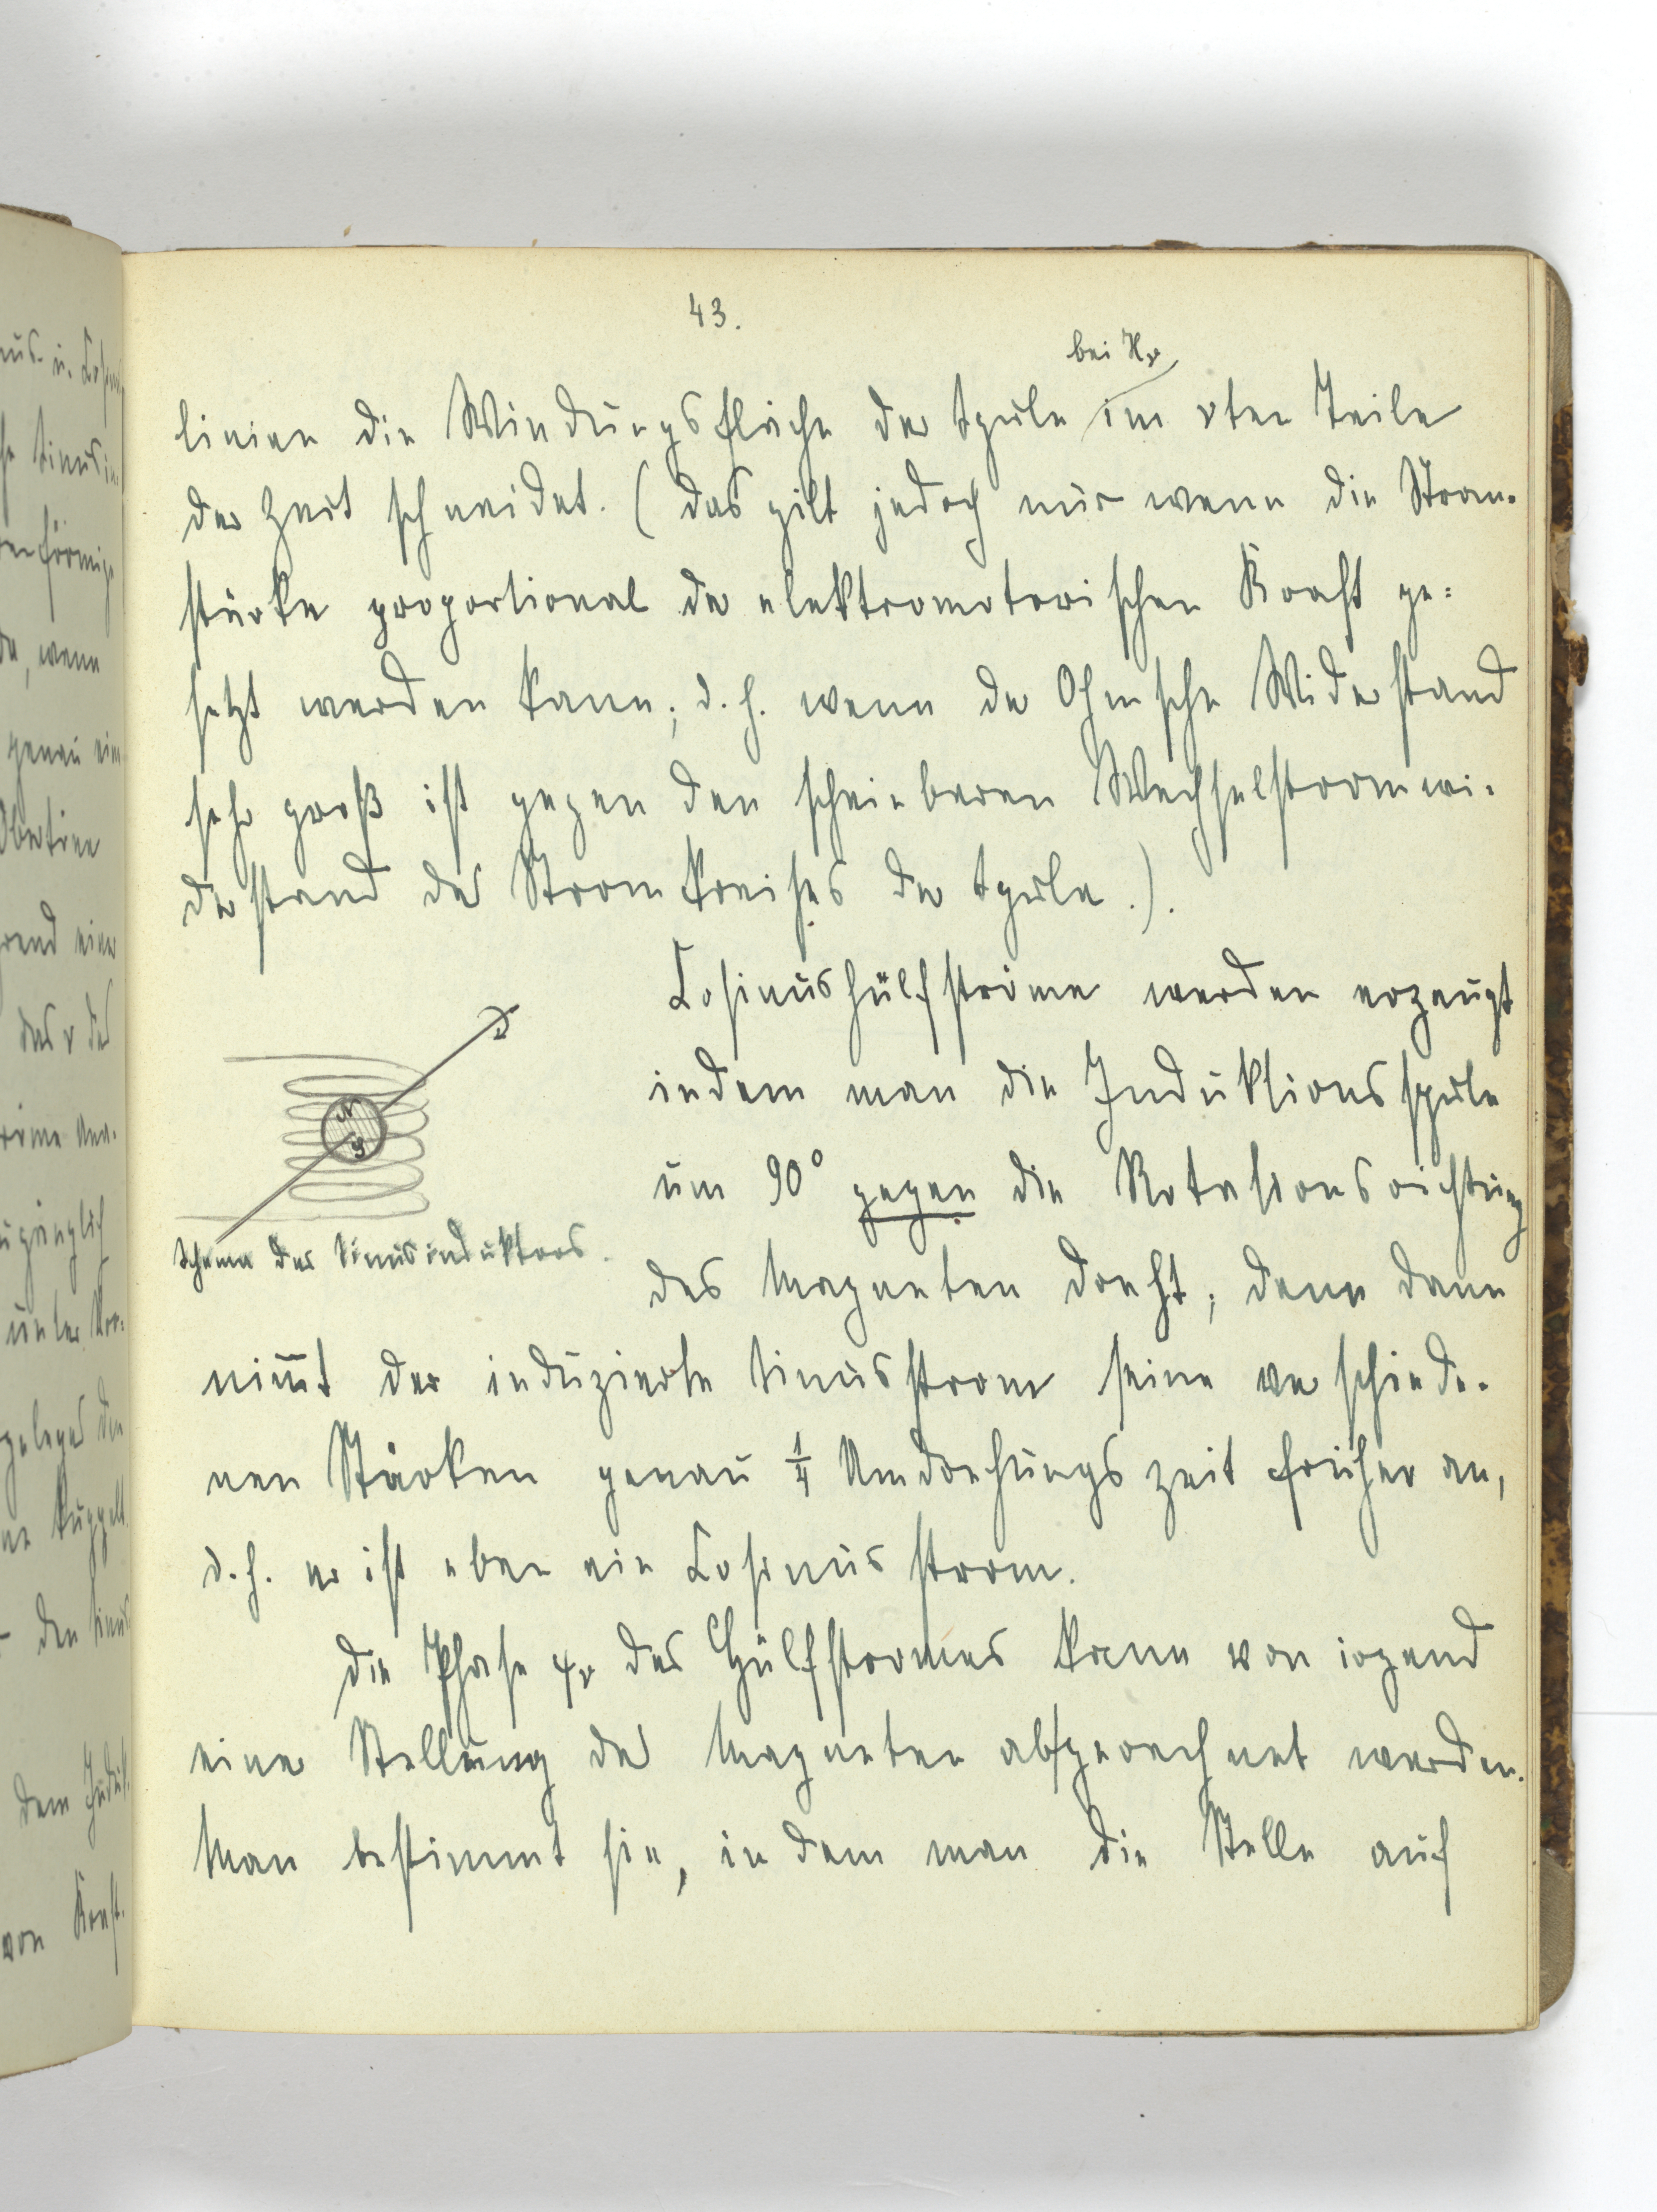 43.
bei Hν
linien die Windungsfläche der Spule im νten Teile
der Zeit schneidet. (das gilt jedoch nur wenn die Strom-
stärke proportional der elektromotorischen Kraft ge=
setzt werden kann; d. h. wenn der Ohmsche Widerstand
sehr groß ist gegen den scheinbaren Wechselstromwi-
derstand des Stromkreises der Spule.).
Cosinushülfströme werden erzeugt
indem man die Induktionsspule
um 90° gegen die Rotationsrichtung
N
S
Schema des Sinusinduktors.
des Magneten dreht; denn dann
nim̅t der induzierte Sinusstrom seine verschiede-
nen Stärken genau 1/4 Umdrehungszeit früher an,
d. h. er ist eben ein Cosinusstrom.
die Phase φν des Hülfstromes kann von irgend
einer Stellung des Magneten abgerechnet werden.
Man bestimmt sie, indem man die Stelle auf